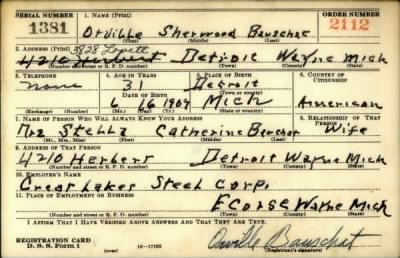 SERIAL NUMBER 1. NAME (Print) ORDER NUMBER
1381 Orville Sherwood Bauschat 2112
(First) (Middle) (Last)
2. ADDRESS (Print) 3828 Lovett
4210 Herbert Detroit Wayne Mich
(Number and street or R. F. D. number) (Town) (County) (State)
3. TELEPHONE 4. AGE IN YEARS 5. PLACE OF BIRTH 6. COUNTRY OF CITIZENSHIP
none 31 Detroit
DATE OF BIRTH (Town or county)
6 16 1909 Mich American
(Exchange) (Number) (Mo.) (Day) (Yr.) (State or country)
7. NAME OF PERSON WHO WILL ALWAYS KNOW YOUR ADDRESS 8. RELATIONSHIP OF THAT PERSON
Mrs Stella Catherine Bauchat Wife
(Mr., Mrs., Miss) (First) (Middle) (Last)
9. ADDRESS OF THAT PERSON
4210 Herbert Detroit Wayne Mich
(Number and street or R. F. D. number) (Town) (County) (State)
10. EMPLOYER'S NAME
Great Lakes Steel Corp.
11. PLACE OF EMPLOYMENT OR BUSINESS
Ecorse Wayne Mich
(Number and street or R. F. D. number) (Town) (County) (State)
I AFFIRM THAT I HAVE VERIFIED ABOVE ANSWERS AND THAT THEY ARE TRUE.
REGISTRATION CARD Orville Bauschat
D. S. S. Form 1 (over) 16—17105 (Registrant's signature)